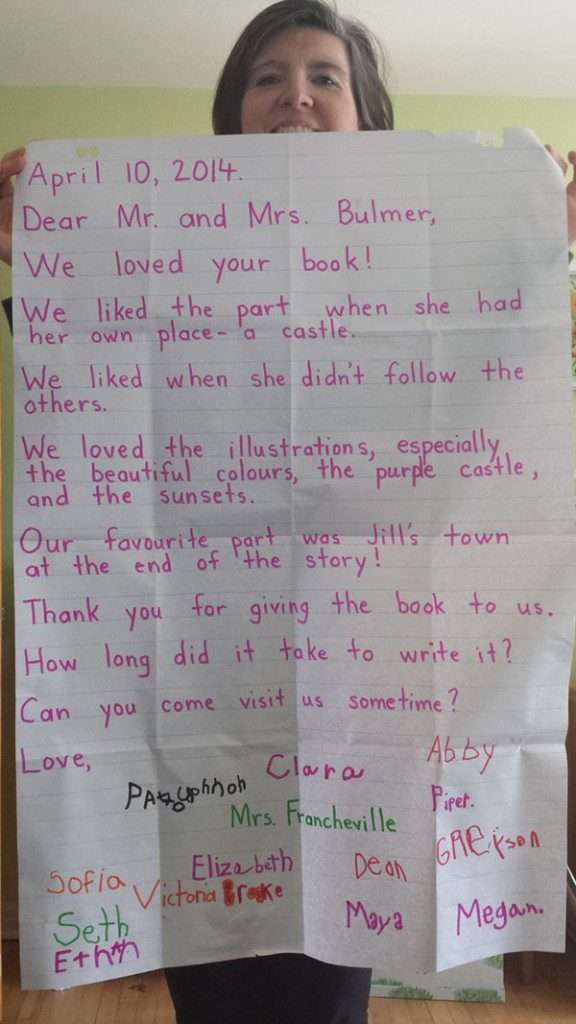 April 10, 2014.
Dear Mr. and Mrs. Bulmer,
We loved your book!
We liked the part when she had
her own place - a castle.
We liked when she didn't follow the
others.
We loved the illustrations, especially
the beautiful colours, the purple castle,
and the sunsets.
Our favourite part was Jill's town
at the end of the story!
Thank you for giving the book to us.
How long did it take to write it?
Can you come visit us sometime?
Love,
Clara
Abby
Piper.
Mrs. Francheville
Elizabeth
Dean
Sofia
Victoria
Seth
Maya
Megan.